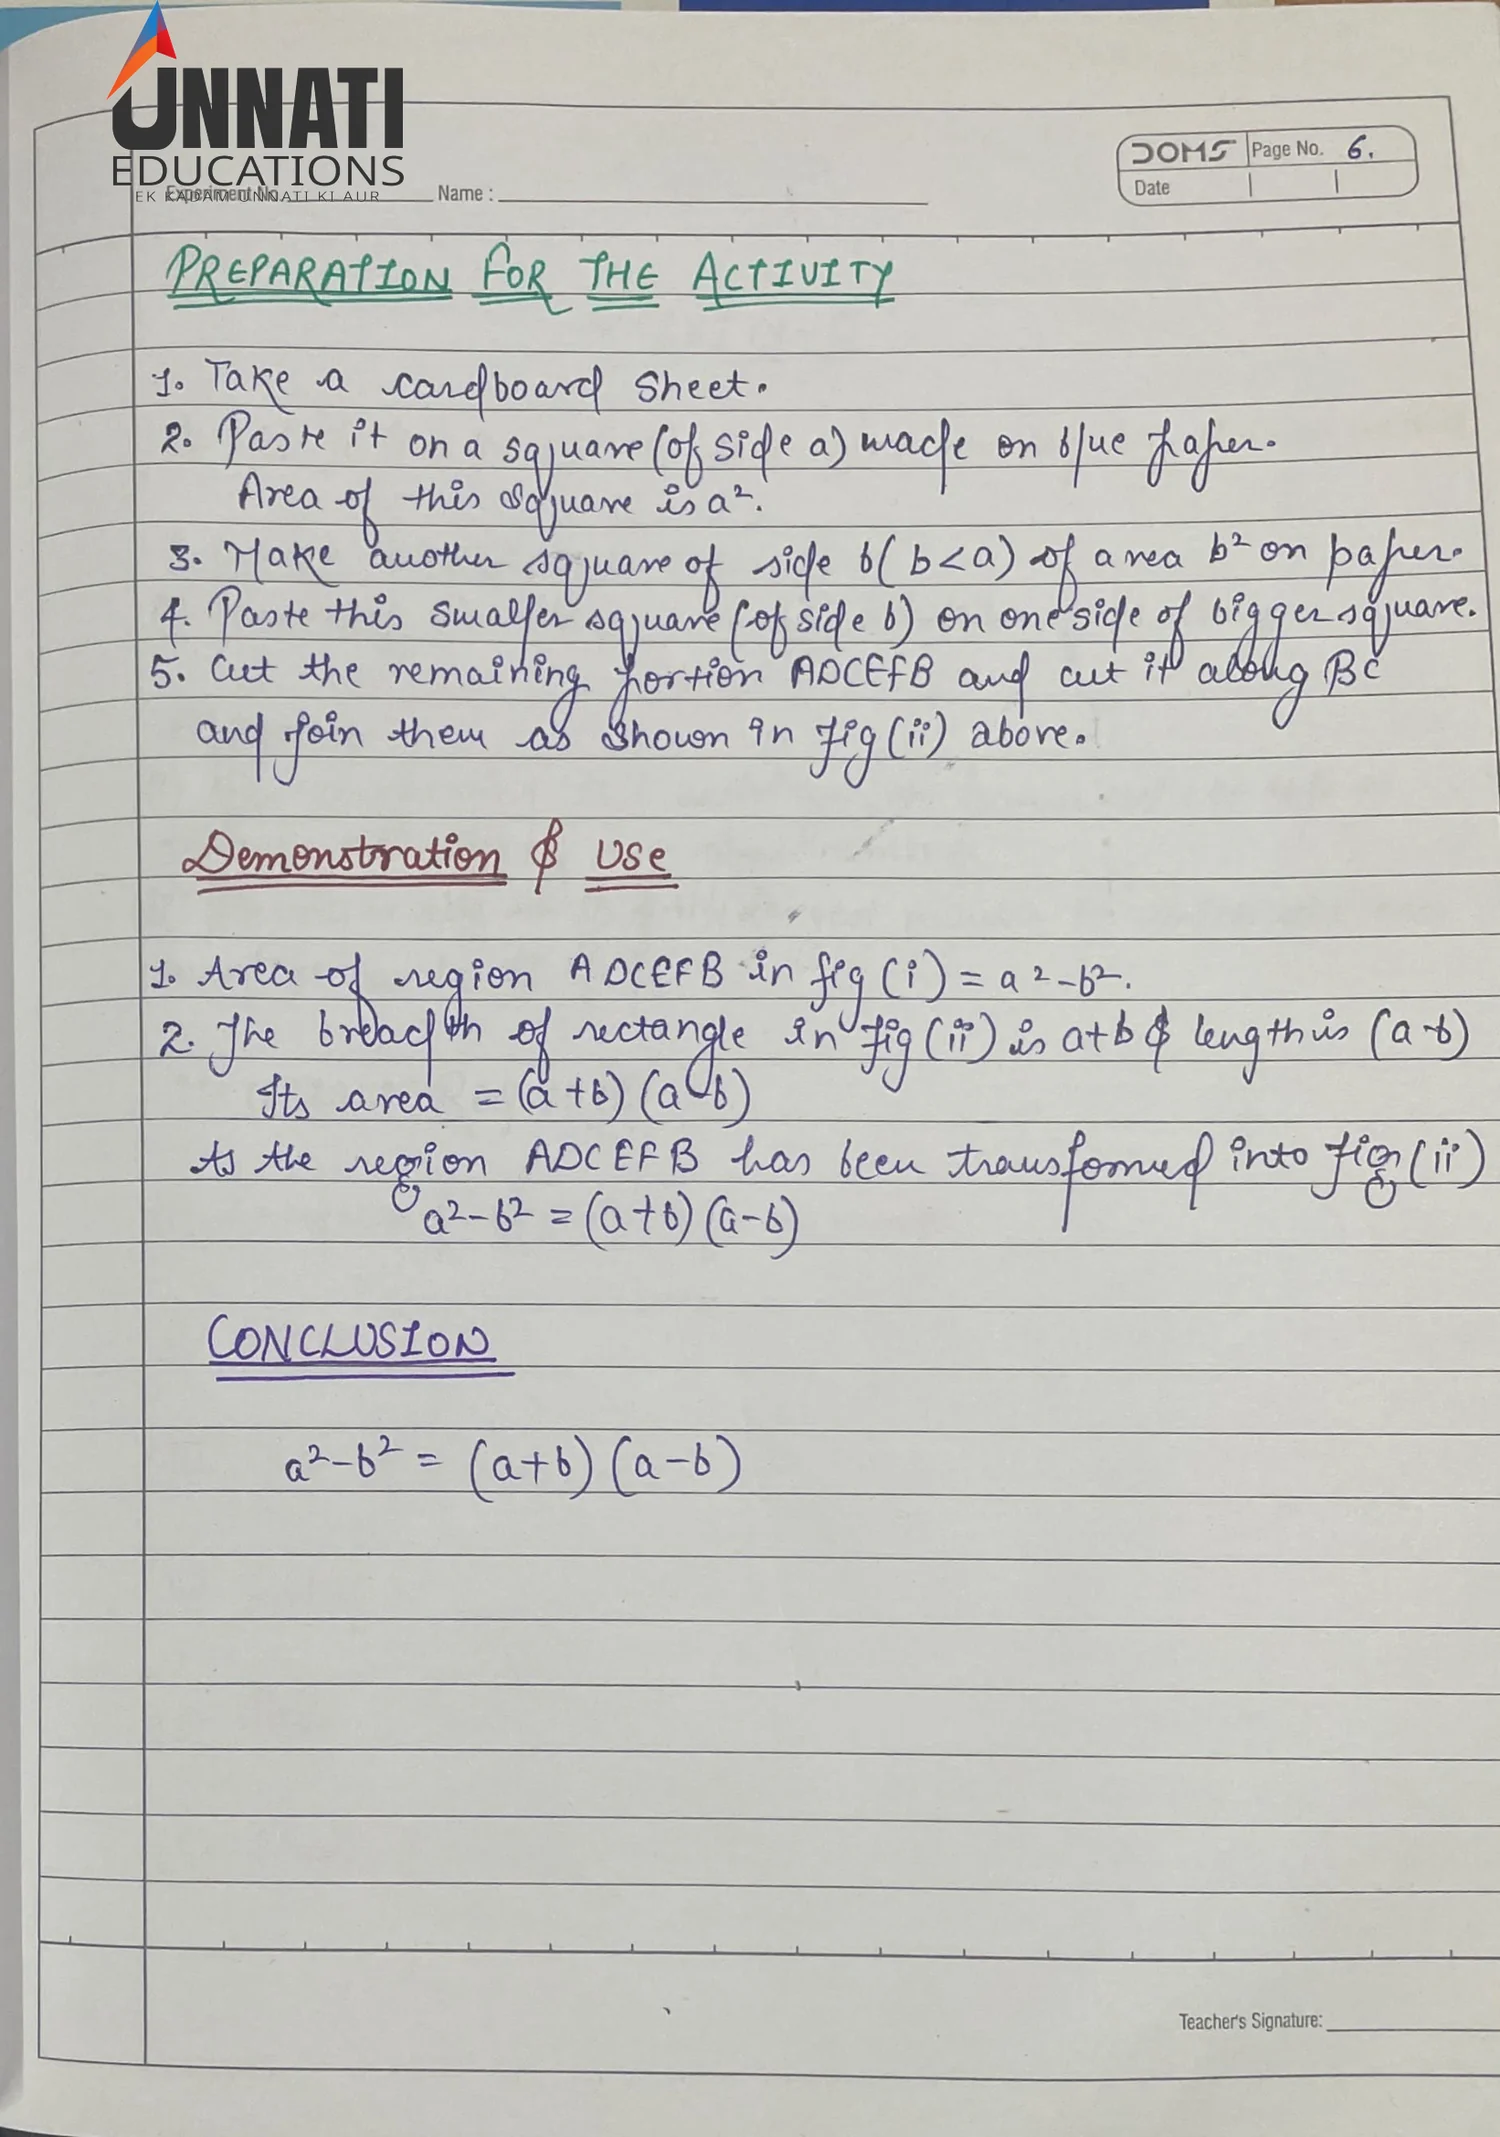 UNNATI
EDUCATIONS
EK KADAM UNNATI KI AUR
Experiment No. Name :
DOMS Page No. 6.
Date
PREPARATION FOR THE ACTIVITY
1. Take a cardboard sheet.
2. Paste it on a square (of side a) made on blue paper.
Area of this square is a².
3. Make another square of side b (b<a) of area b² on paper.
4. Paste this smaller square (of side b) on one side of bigger square.
5. Cut the remaining portion ADCEFB and cut it along BC
and join them as shown in fig (ii) above.
Demonstration & Use
1. Area of region ADCEFB in fig (i) = a²-b².
2. The breadth of rectangle in fig (ii) is a+b & length is (a-b)
Its area = (a+b) (a-b)
As the region ADCEFB has been transformed into fig (ii)
a²-b² = (a+b) (a-b)
CONCLUSION
a²-b² = (a+b) (a-b)
Teacher's Signature: